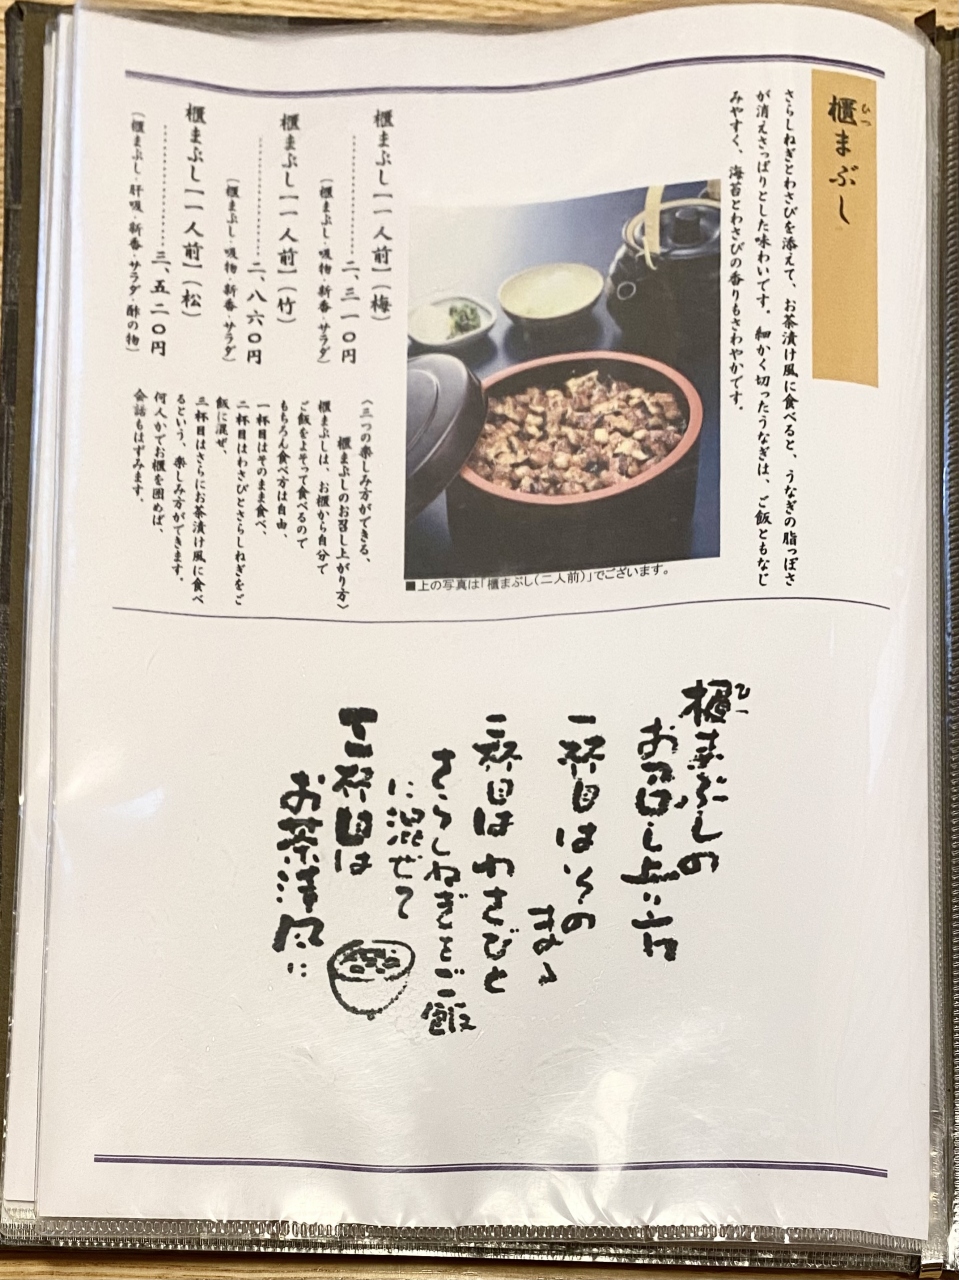 櫃まぶし
ひつ
さらしねぎとわさびを添えて、お茶漬け風に食べると、うなぎの脂っぽさ
が消えさっぱりとした味わいです。細かく切ったうなぎは、ご飯ともなじ
みやすく、海苔とわさびの香りもさわやかです。
■上の写真は「櫃まぶし(二人前)」でございます。
櫃まぶし【一人前】(梅)
二、三一〇円
(櫃まぶし・吸物・新香・サラダ)
櫃まぶし【一人前】(竹)
二、八六〇円
(櫃まぶし・吸物・新香・サラダ)
櫃まぶし【一人前】(松)
三、五二〇円
(櫃まぶし・肝吸・新香・サラダ・酢の物)
〈三つの楽しみ方ができる、
櫃まぶしのお召し上がり方〉
櫃まぶしは、お櫃から自分で
ご飯をよそって食べるので
もちろん食べ方は自由、
一杯目はそのまま食べ、
二杯目はわさびとさらしねぎをご
飯に混ぜ、
三杯目はさらにお茶漬け風に食べ
るという、楽しみ方ができます。
何人かでお櫃を囲めば、
会話もはずみます。
櫃まぶしの
ひつ
お召し上り方
一杯目はその
まま
二杯目はわさびと
さらしねぎをご飯
に混ぜて
三杯目は
お茶漬風に